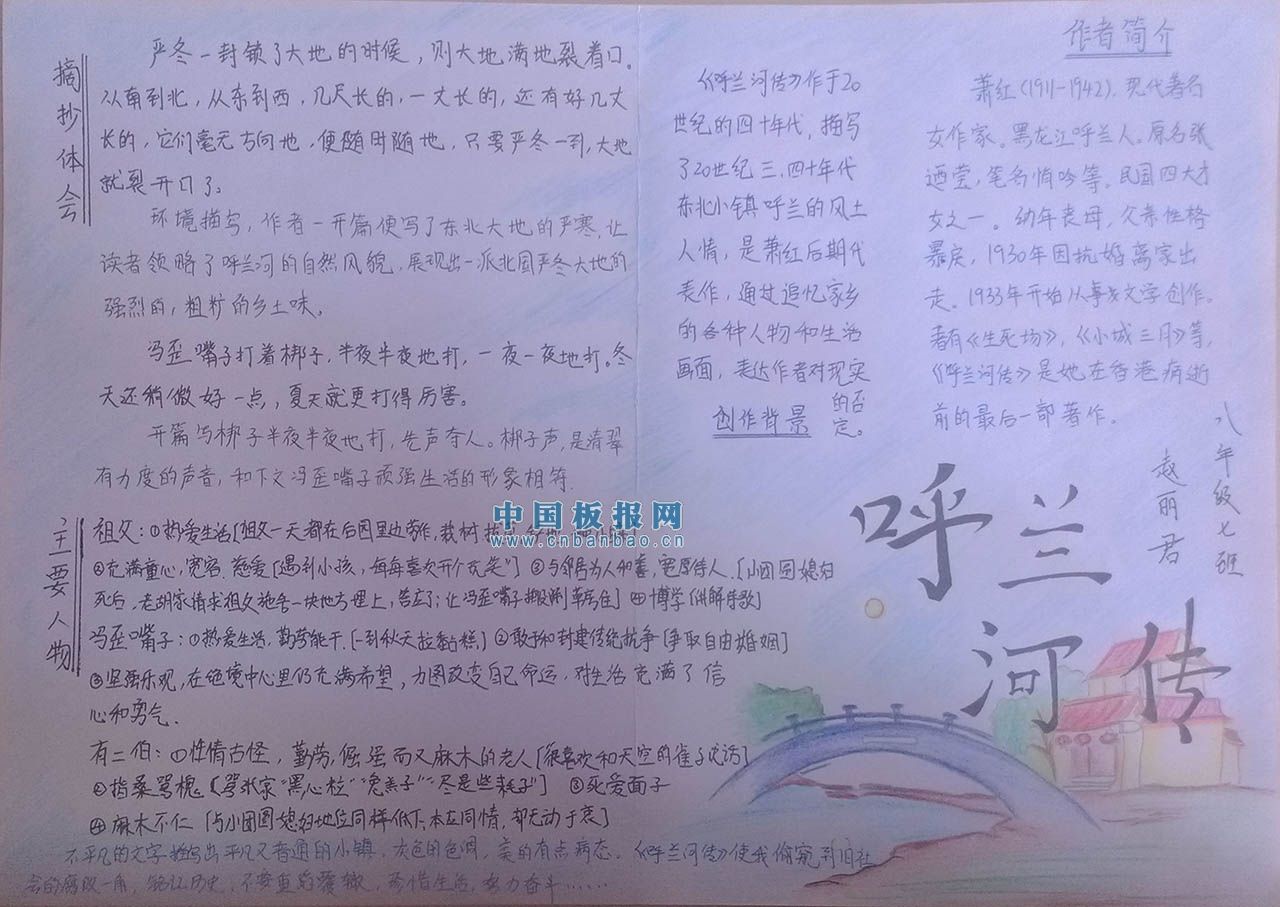 摘抄体会
严冬一封锁了大地的时候，则大地满地裂着口。
从南到北，从东到西，几尺长的，一丈长的，还有好几丈
长的，它们毫无方向地，便随时随地，只要严冬一到，大地
就裂开口了。
环境描写，作者一开篇便写了东北大地的严寒，让
读者领略了呼兰河的自然风貌，展现出一派北国严冬大地的
强烈的，粗犷的乡土味。
冯歪嘴子打着梆子，半夜半夜地打，一夜一夜地打。冬
天还稍微好一点，夏天就更打得厉害。
开篇写梆子半夜半夜地打，先声夺人。梆子声，是清翠
有力度的声音，和下文冯歪嘴子顽强生活的形象相符.
主要人物
祖父：①热爱生活[祖父一天都在后园里边劳作，栽树
②充满童心，宽容.慈爱[遇到小孩，每每喜欢开个玩笑"] ③与邻居为人和善，宽厚待人.[小团圆媳妇
死后，老胡家请求祖父施舍一块地方埋上，答应了；让冯歪嘴子搬到草房住] ④博学[讲解诗歌]
冯歪嘴子：①热爱生活，勤劳能干.[一到秋天拉黏糕] ②敢于和封建传统抗争[争取自由婚姻]
③坚强乐观，在绝境中心里仍充满希望，力图改变自己命运，对生活充满了信
心和勇气.
有二伯：①性情古怪，勤劳，倔强而又麻木的老人[很喜欢和天空的雀子说话]
②指桑骂槐《骂张家"黑心粒""兔羔子""尽是些耗子"] ③死爱面子
④麻木不仁 [与小团圆媳妇地位同样低下，本应同情，却无动于衷]
不平凡的文字描写出平凡又普通的小镇，灰色的色调，美的有点病态。《呼兰河传》使我偷窥到旧社
会的腐败一角，铭记历史，不要重蹈覆辙，珍惜生活，努力奋斗……
《呼兰河传》作于20
世纪的四十年代，描写
了20世纪三.四十年代
东北小镇呼兰的风土
人情，是萧红后期代
表作，通过追忆家乡
的各种人物和生活
画面，表达作者对现实
的否
定。
创作背景
作者简介
萧红(1911-1942)，现代著名
女作家。黑龙江呼兰人。原名张
迺莹，笔名悄吟等。民国四大才
女之一。幼年丧母，父亲性格
暴戾，1930年因抗婚离家出
走。1933年开始从事文学创作。
著有《生死场》，《小城三月》等，
《呼兰河传》是她在香港病逝
前的最后一部著作。
八年级七班
赵丽君
呼兰
河传
中国板报网
www.cnbanbao.cn